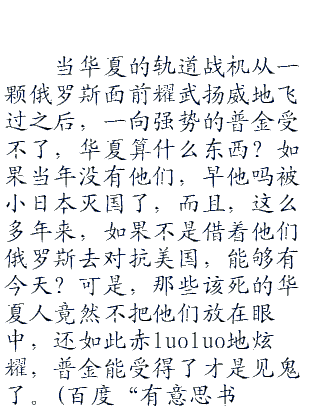 当华夏的轨道战机从一
颗俄罗斯面前耀武扬威地飞
过之后，一向强势的普金受
不了，华夏算什么东西？如
果当年没有他们，早他吗被
小日本灭国了，而且，这么
多年来，如果不是借着他们
俄罗斯去对抗美国，能够有
今天？可是，那些该死的华
夏人竟然不把他们放在眼
中，还如此赤luoluo地炫
耀，普金能受得了才是见鬼
了。(百度“有意思书